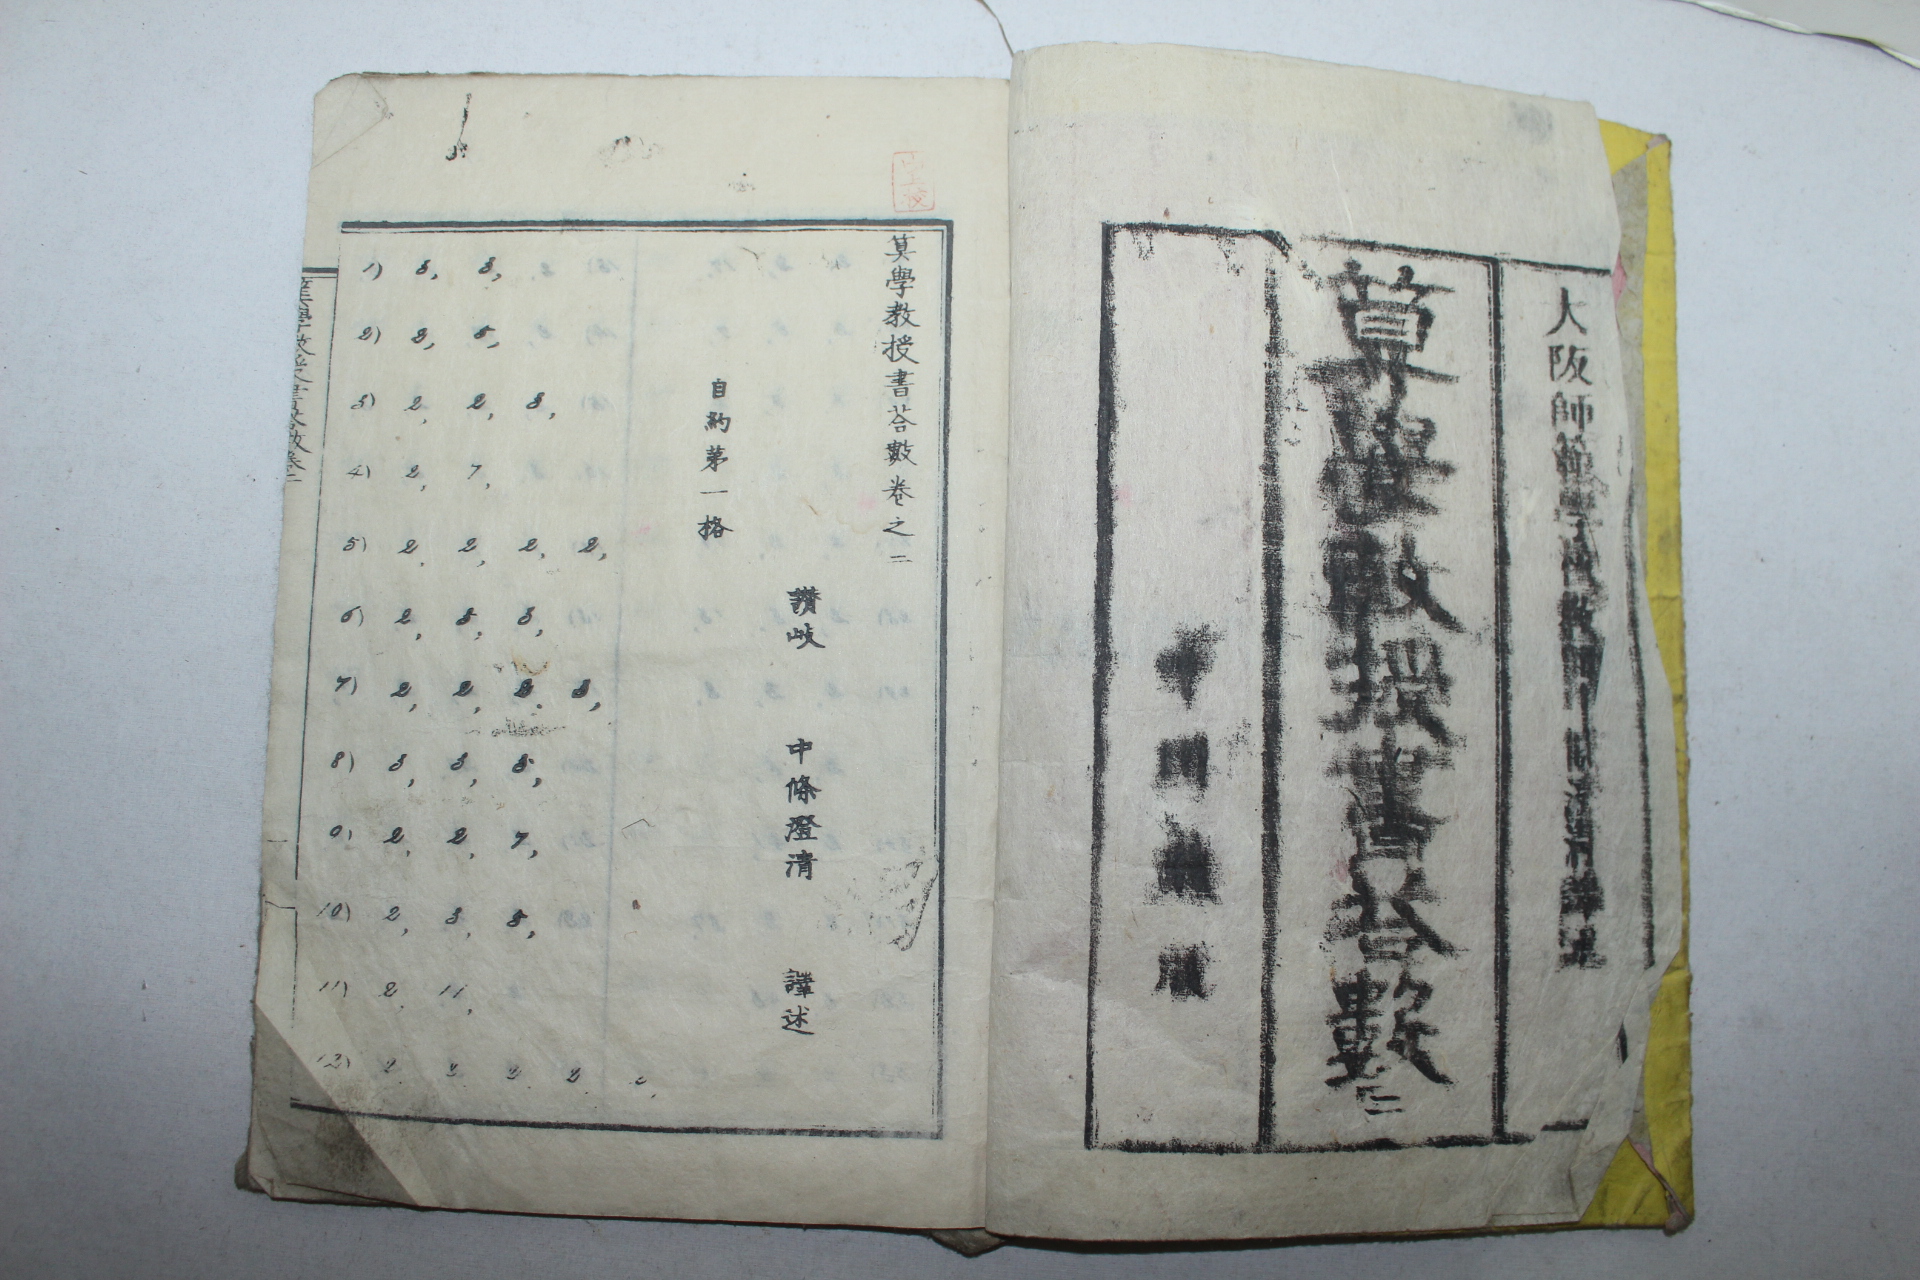 大阪師範學校教師中條澄清譯述
算學教授書荅數 二
算學教授書荅數卷之二
讃岐 中條澄清 譯述
自約第一格
1) 3, 3,
2) 2, 5,
3) 2, 2, 3,
4) 2, 7,
5) 2, 2, 2, 2,
6) 2, 3, 3,
7) 2, 2, 2, 3,
8) 3, 3, 3,
9) 2, 2, 7,
10) 2, 3, 5,
11) 2, 11,
12) 2, 2, 2, 2, 2,